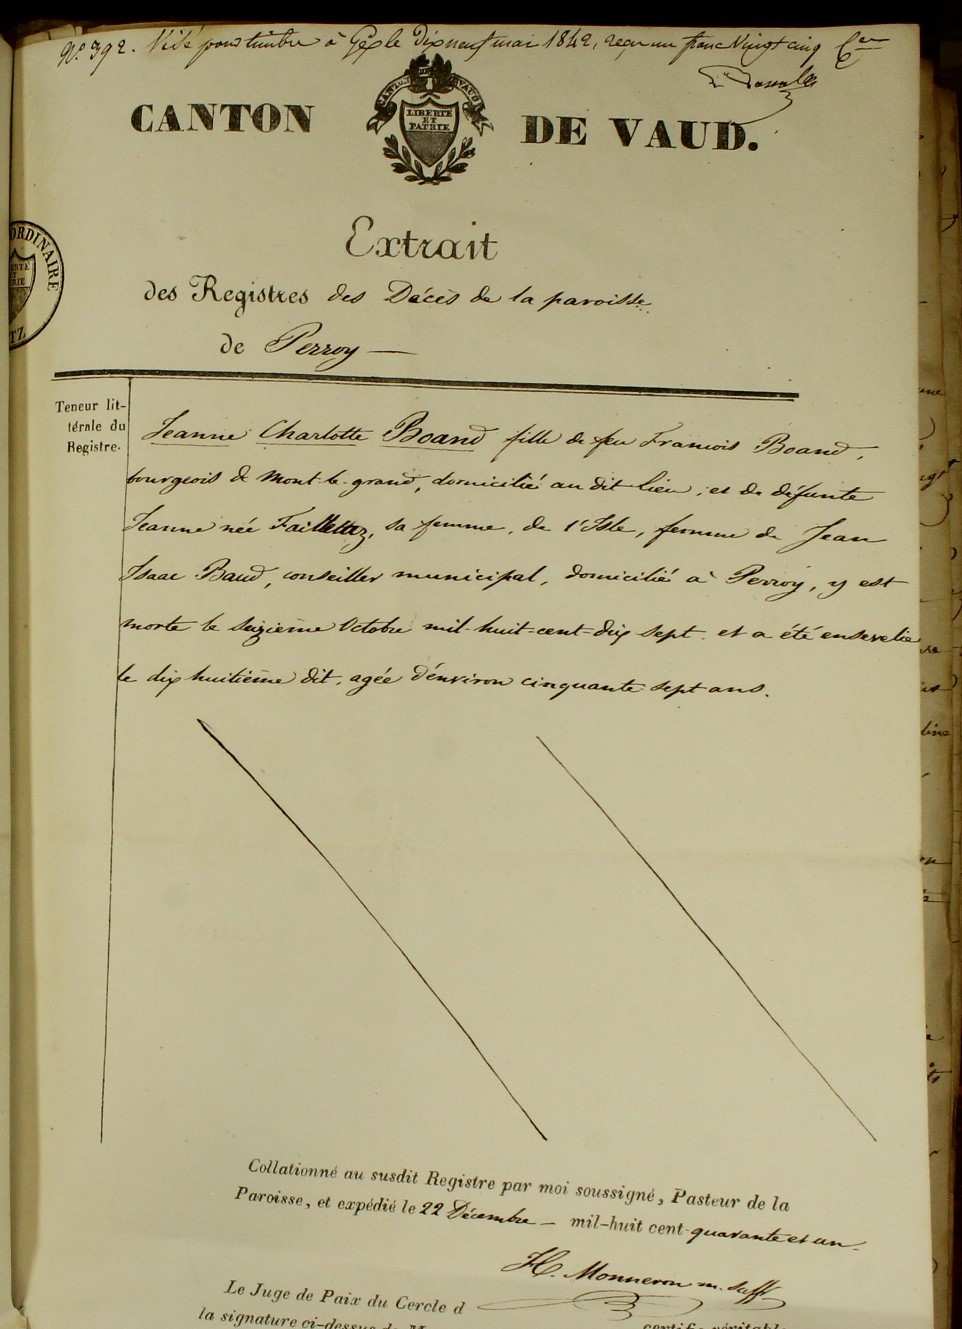 N.º 392. Visé pour timbre à Gex le dix neuf mai 1842, reçu un franc vingt cinq Cen
CANTON DE VAUD.
LIBERTÉ
ET
PATRIE
Extrait
ORDINAIRE
des Registres des Décès de la paroisse
de Perroy —
Teneur lit-
térale du
Registre.
Jeanne Charlotte Boand fille de feu Francois Boand,
bourgeois de Mont-le-grand, domicilié au dit lieu, et de défunte
Jeanne née Faillettaz, sa femme, de l'Isle, femme de Jean
Isaac Baud, conseiller municipal, domicilié à Perroy, y est
morte le seizième Octobre mil-huit-cent-dix sept. et a été ensevelie
le dix huitième dit, agée d'environ cinquante sept ans.
Collationné au susdit Registre par moi soussigné, Pasteur de la
Paroisse, et expédié le 22 Décembre — mil-huit cent-quarante et un.
H. Monneron m. suff
Le Juge de Paix du Cercle d
la signature ci-dessus de M certifie véritable